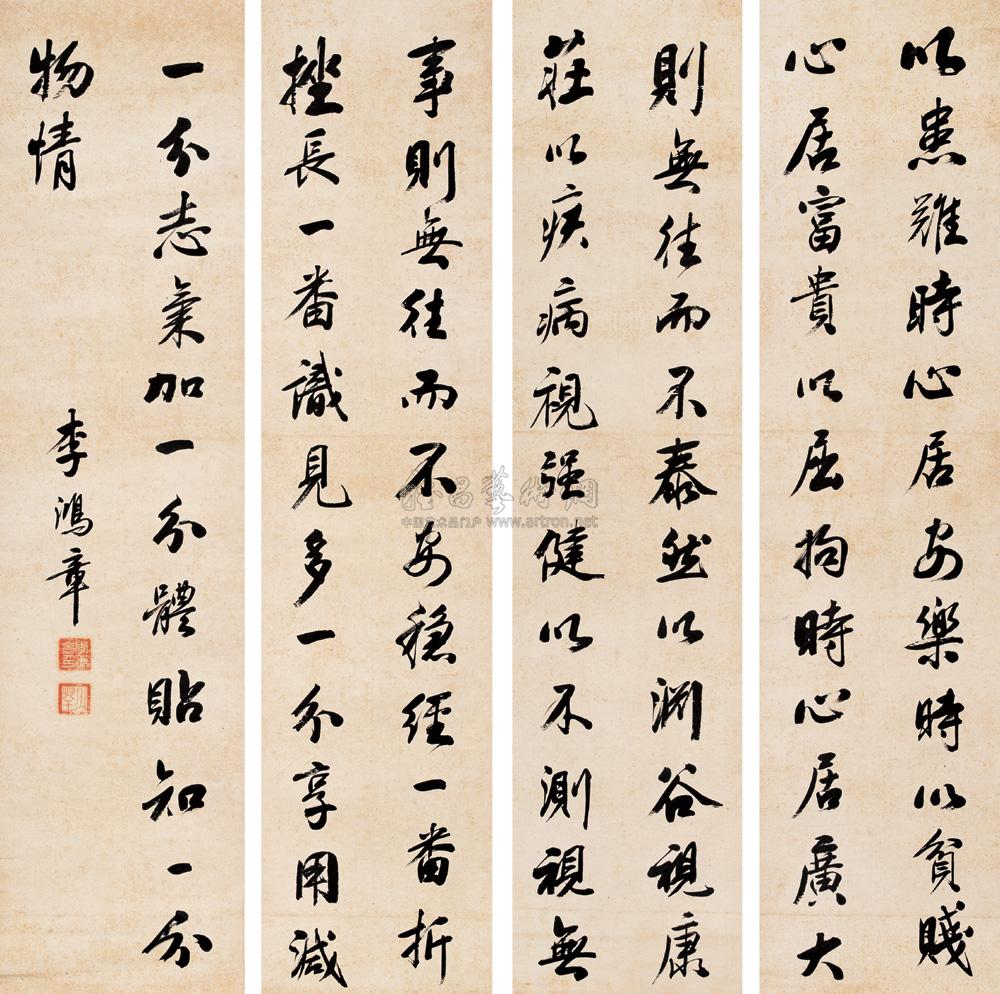 以患難時心居安樂時以貧賤
心居富貴以屈拘時心居廣大
則無往而不泰然以淵谷視康
莊以疾病視强健以不測視無
事則無往而不安穩經一番折
挫長一番識見多一分享用減
一分志氣加一分體貼知一分
物情
李鴻章
中国艺术品门户 www.artron.net